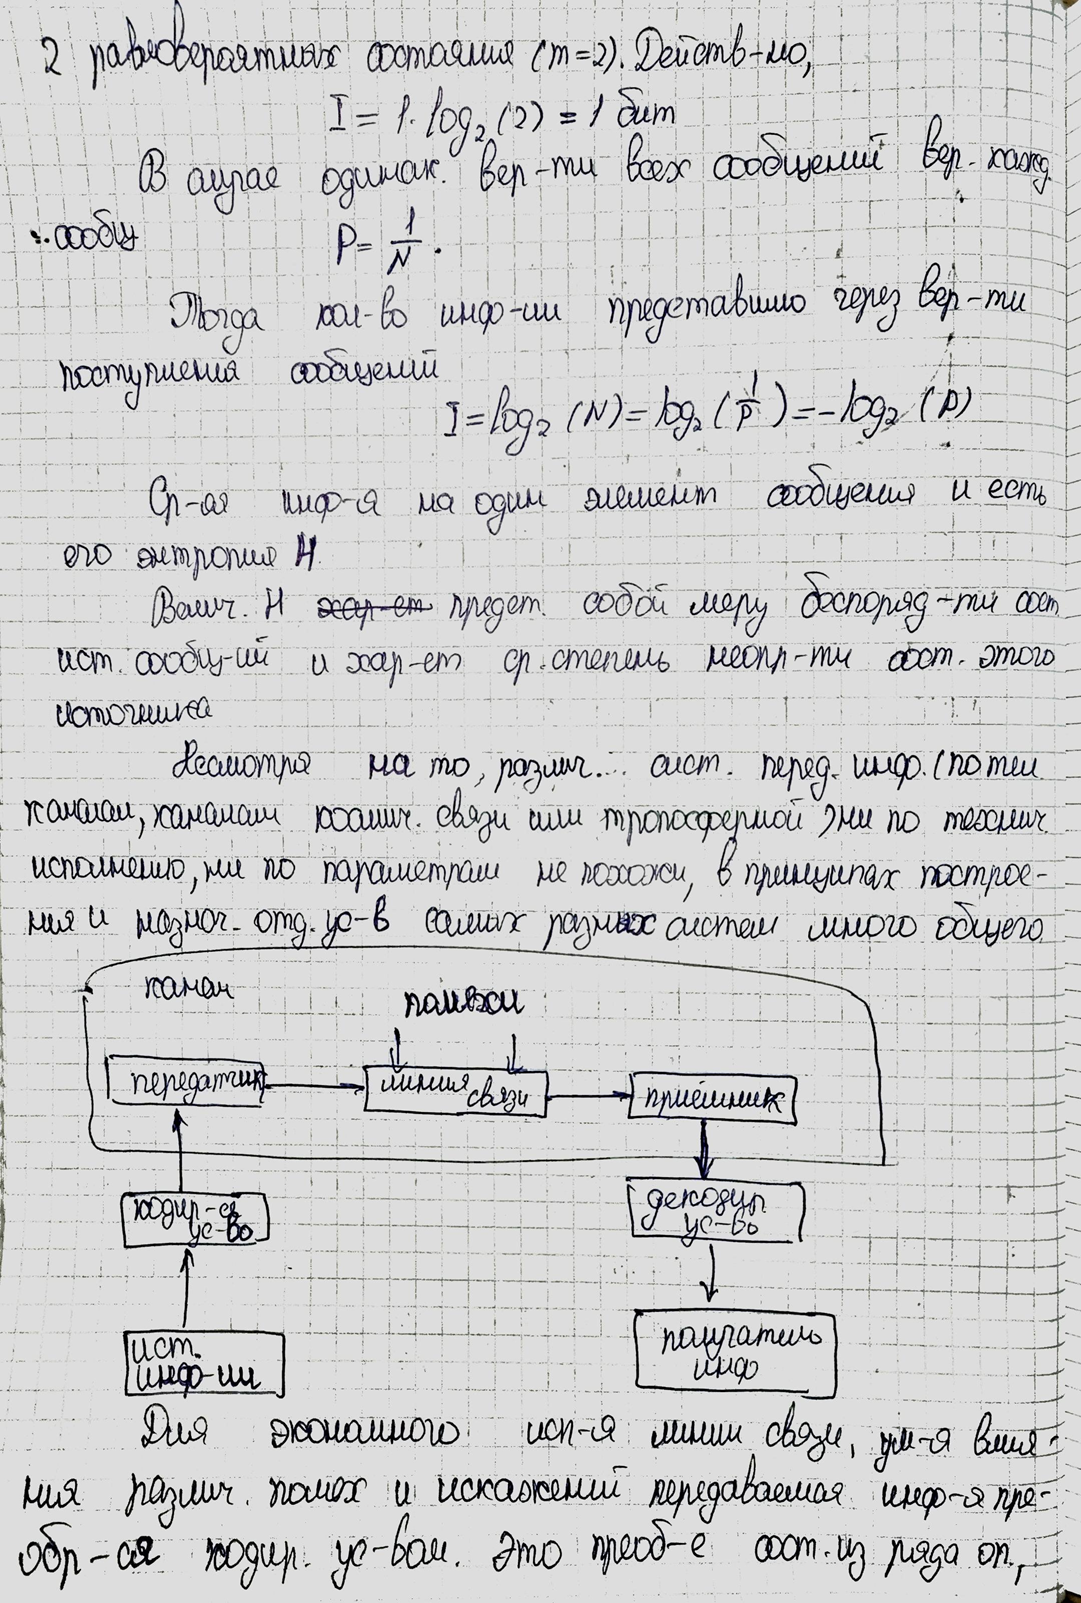 2 равновероятных состояния (m=2). Действ-но,
I = 1·log₂(2) = 1 бит
В случае одинак. вер-ти всех сообщений вер. кажд.
сообщ
P = 1/N.
Тогда кол-во инф-ии представимо через вер-ти
поступления сообщений
I = log₂(N) = log₂(1/P) = -log₂(P)
Ср-ая инф-я на один элемент сообщения и есть
его энтропия H
Велич. H хар-ет предст. собой меру беспоряд-ти сост
ист. сообщ-ий и хар-ет ср. степень неопр-ти сост. этого
источника
Несмотря на то, различ... сист. перед. инф. (по тел
каналам, каналам космич. связи или тропосферной) ни по технич.
исполнению, ни по параметрам не похожи, в принципах построе-
ния и назнач. отд. ус-в самых разных систем много общего
канал
помехи
передатчик
линия связи
приёмник
кодир-ее ус-во
декодир ус-во
ист. инф-ии
получатель инф
Для экономного исп-я линии связи, ум-я влия-
ния различ. помех и искажений передаваемая инф-я пре-
обр-ся кодир. ус-вом. Это преоб-е сост. из ряда оп.,